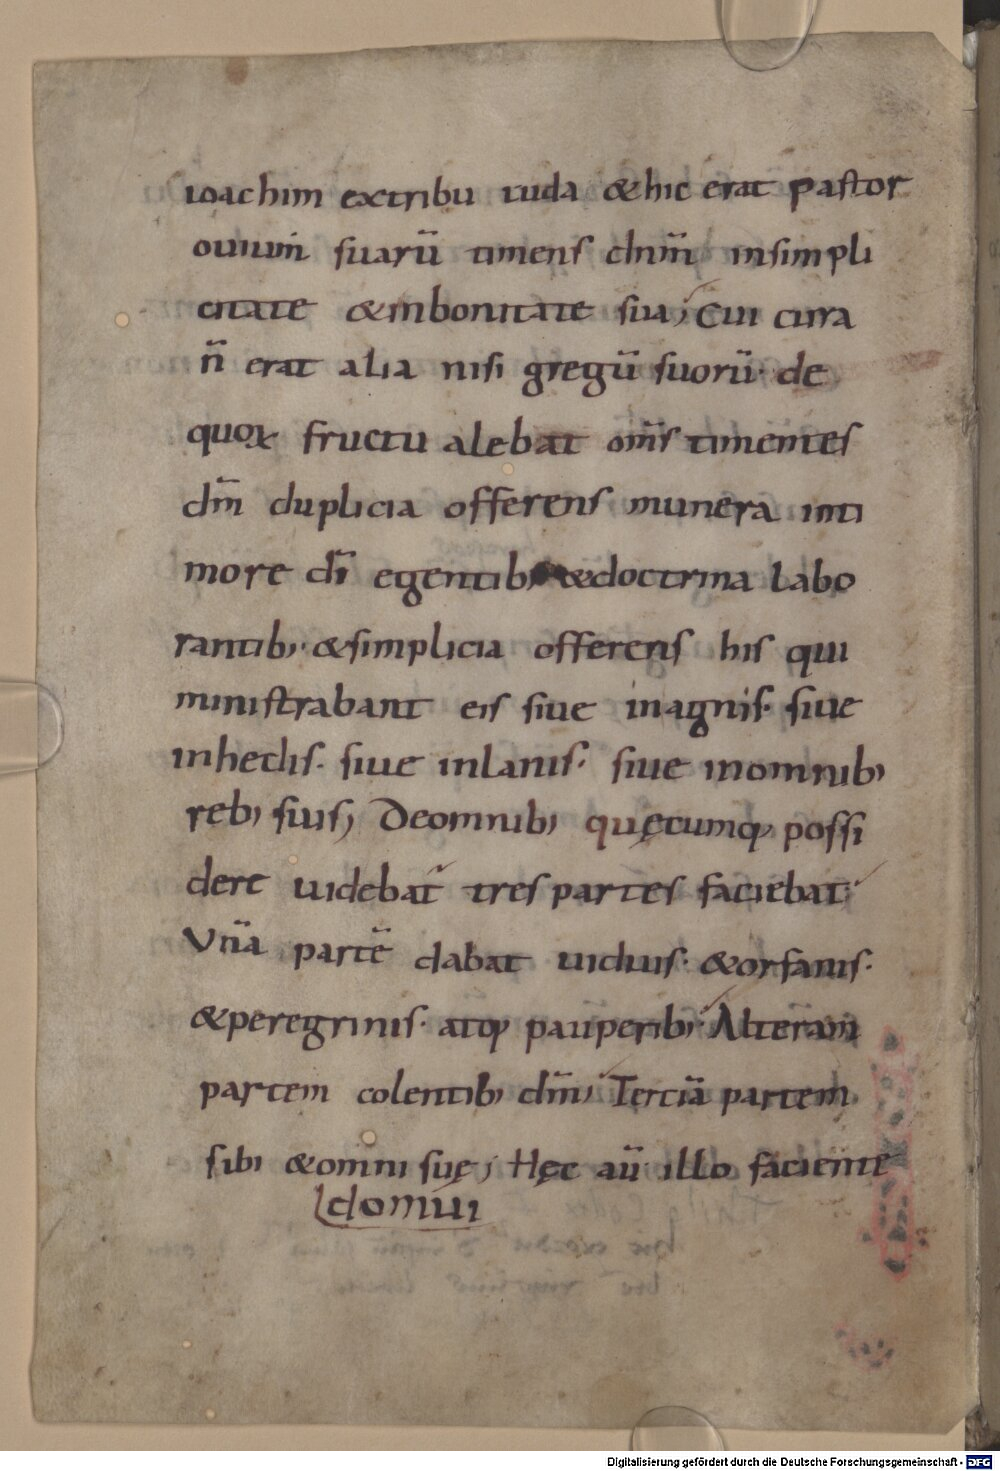 ioachim extribu iuda & hic erat pastor
ouium suarū timens dn̄m insimpli
citate & inbonitate sua; Cui cura
n̄ erat alia nisi gregū suorū· de
quox fructu alebat om̄s timentes
dm̄ duplicia offerens munera inti
more dī egentib; & doctrina labo
rantib;· & simplicia offerens his qui
ministrabant eis siue inagnis· siue
inhedis· siue inlanis· siue inomnib;
reb; suis; Deomnib; quęcumq; possi
dere uidebat̄ tres partes faciebat·
Unā partē dabat uiduis· & orfanis·
& peregrinis· atq; pauperib;· Alteram
partem colentib; dm̄; Terciā partem
sibi & omni suę; Hęc aū illo faciente
domui
Digitalisierung gefördert durch die Deutsche Forschungsgemeinschaft - DFG